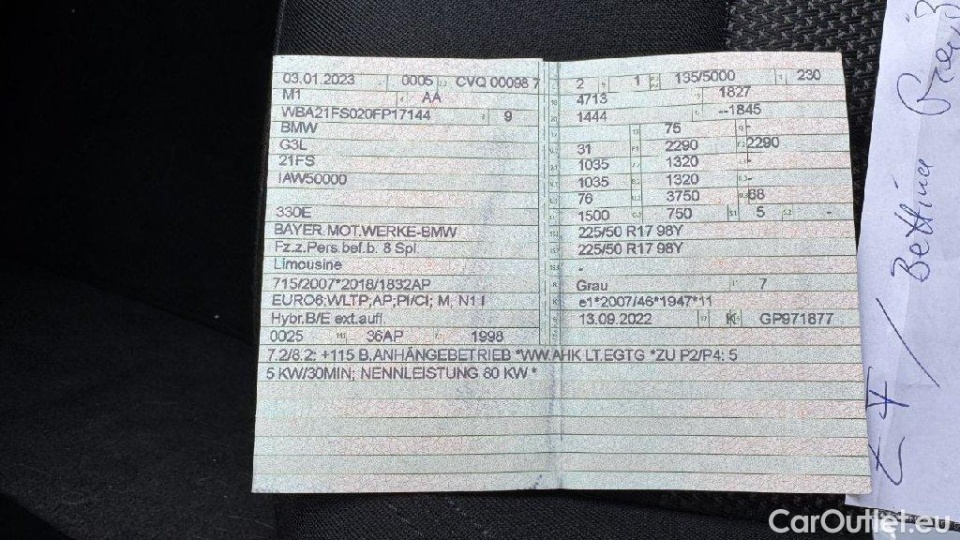 03.01.2023 0005 CVQ 00098 7
M1 AA
WBA21FS020FP17144 9
BMW
G3L
21FS
IAW50000
330E
BAYER.MOT.WERKE-BMW
Fz.z.Pers.bef.b. 8 Spl.
Limousine
715/2007*2018/1832AP
EURO6;WLTP;AP;PI/CI; M, N1 I
Hybr.B/E ext.aufl.
0025 36AP 1998
2 1 135/5000 230
4713 1827
1444 --1845
75 -
31 2290 2290
1035 1320
1035 1320 -
76 3750 68
1500 750 5 -
225/50 R17 98Y
225/50 R17 98Y
-
Grau 7
e1*2007/46*1947*11
13.09.2022 K GP971877
7.2/8.2: +115 B.ANHÄNGEBETRIEB *WW.AHK LT.EGTG *ZU P2/P4: 5
5 KW/30MIN; NENNLEISTUNG 80 KW *
Bettina
CarOutlet.eu